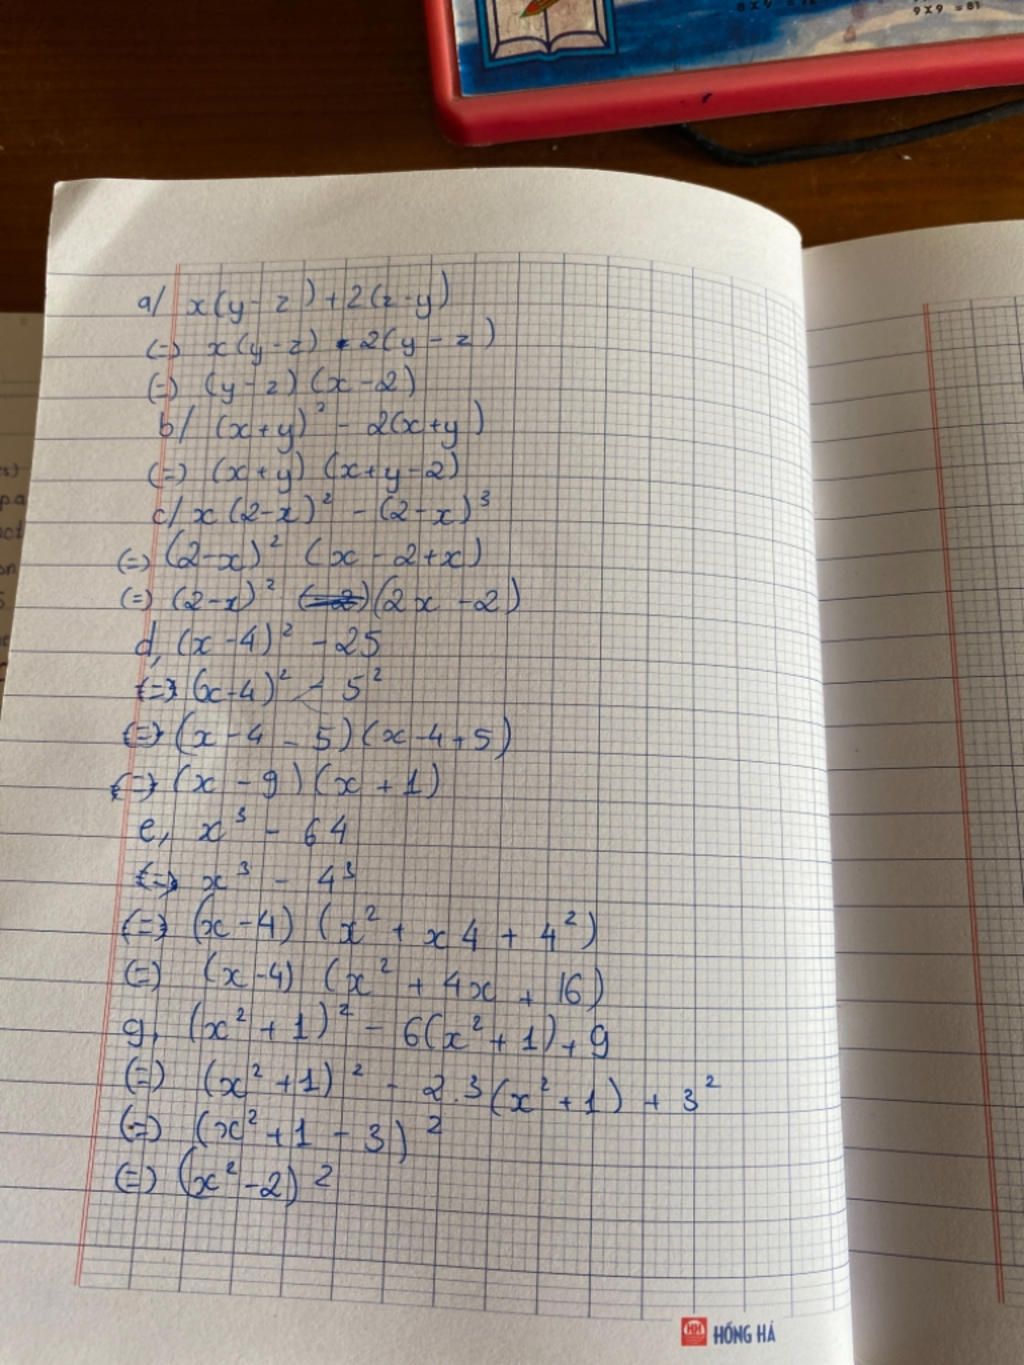 8 x 9 = 72
9 x 9 = 81
a/ x(y-z)+2(z-y)
(=) x(y-z) - 2(y-z)
(=) (y-z)(x-2)
b/ (x+y)² - 2(x+y)
(=) (x+y)(x+y-2)
c/ x(2-x)² - (2-x)³
(=) (2-x)² (x-2+x)
(=) (2-x)² (2x-2)
d, (x-4)² - 25
(=) (x-4)² - 5²
(=) (x-4-5)(x-4+5)
(=) (x-9)(x+1)
e, x³ - 64
(=) x³ - 4³
(=) (x-4)(x²+x4+4²)
(=) (x-4)(x²+4x+16)
g, (x²+1)² - 6(x²+1)+9
(=) (x²+1)² - 2.3(x²+1)+3²
(=) (x²+1-3)²
(=) (x²-2)²
HH HỒNG HÀ